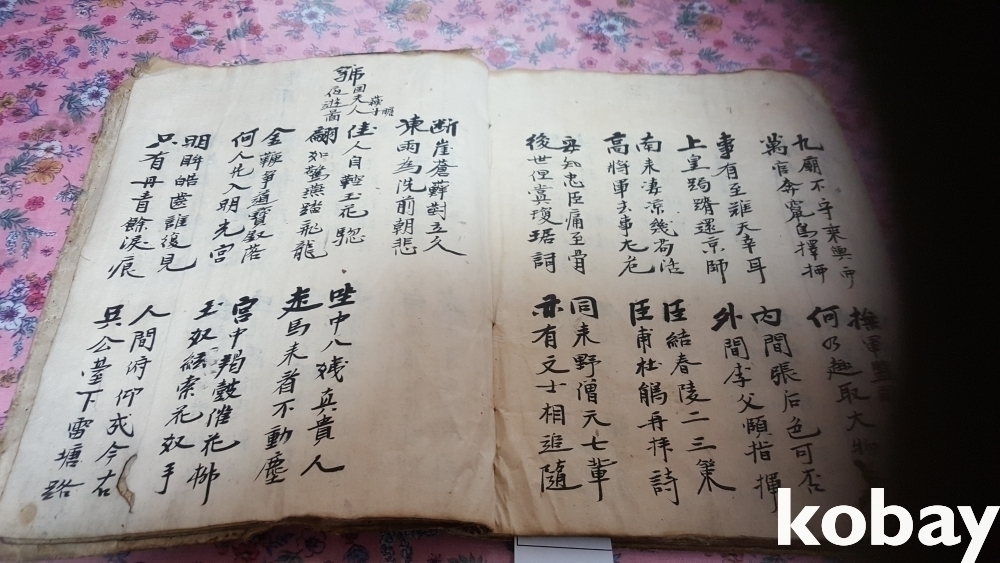 九廟不守乘輿西
萬官奔竄鳥擇栖
撫軍監
何乃趣取大物
事有至難天幸耳
上皇跼蹐還京師
內間張后色可否
外間李父頤指揮
南來凄凉幾苟活
高將軍去事尤危
臣結春陵二三策
臣甫杜鵑再拜詩
安知忠臣痛至骨
後世但賞瓊琚詞
同來野僧六七輩
亦有文士相追隨
断崖蒼蘚對立久
凍雨為洗前朝悲
號國夫人
夜遊圖
蘇子瞻
佳人自鞚玉花驄
翩如驚燕踏飛龍
坐中八姨真貴人
走馬來看不動塵
金鞭爭道寶釵落
何人先入明光宮
宮中羯鼓催花柳
玉奴絃索花奴手
明眸皓齒誰復見
只有丹青餘淚痕
人間俯仰成今古
吳公臺下雷塘路
kobay